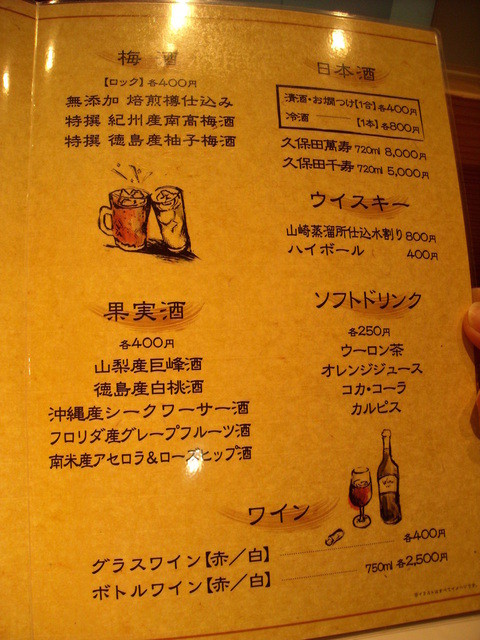 梅酒
【ロック】各400円
無添加 焙煎樽仕込み
特撰 紀州産南高梅酒
特撰 徳島産柚子梅酒
果実酒
各400円
山梨産巨峰酒
徳島産白桃酒
沖縄産シークワーサー酒
フロリダ産グレープフルーツ酒
南米産アセロラ&ローズヒップ酒
日本酒
清酒・お燗つけ【1合】各400円
冷酒 【1本】各800円
久保田萬寿 720ml 8,000円
久保田千寿 720ml 5,000円
ウイスキー
山崎蒸溜所仕込水割り 800円
ハイボール 400円
ソフトドリンク
各250円
ウーロン茶
オレンジジュース
コカ・コーラ
カルピス
ワイン
グラスワイン【赤／白】 各400円
ボトルワイン【赤／白】 750ml 各2,500円